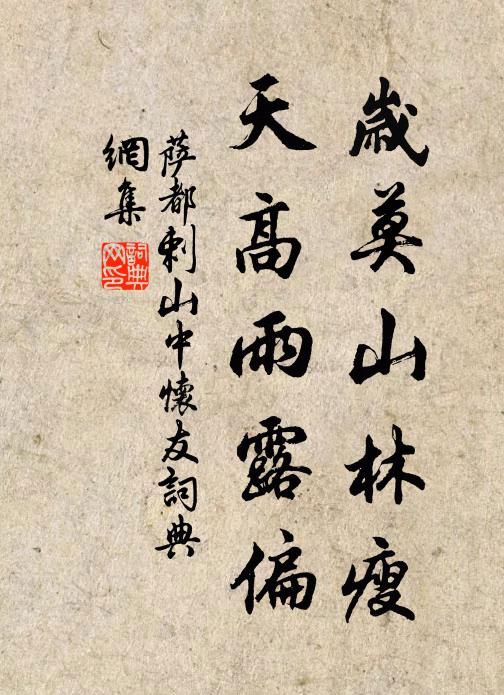 歲莫山林瘦
天高雨露偏
薩都剌山中懷友詞典
網集
詞典网印